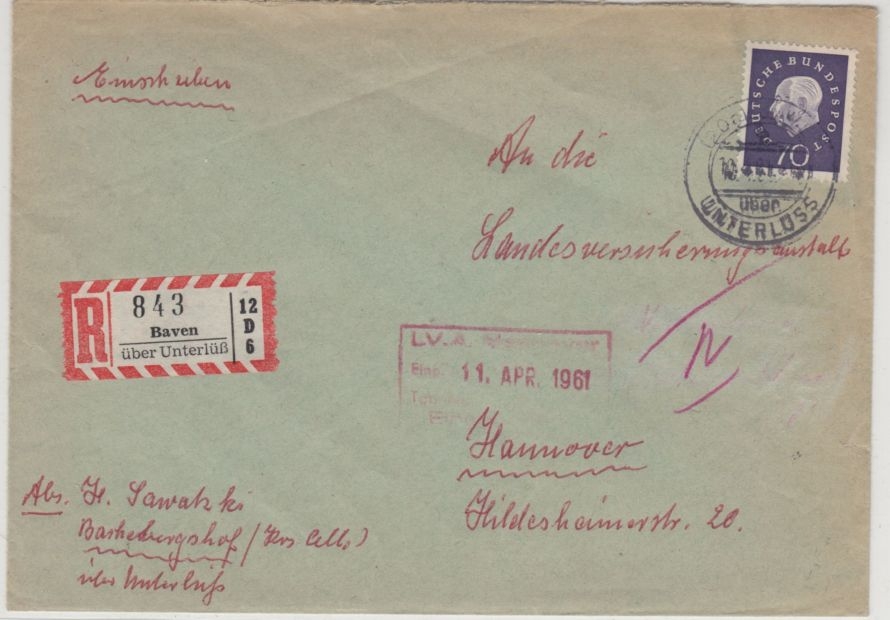 Einschreiben
DEUTSCHE BUNDESPOST
70
über
UNTERLÜSS
An die
Landesversicherungsanstalt
R
843
Baven
über Unterlüß
12
D
6
L.V.A. Hannover
11. APR. 1961
N
Hannover
Hildesheimerstr. 20.
Abs. H. Sawatzki
(Krs Celle)
über Unterlüß